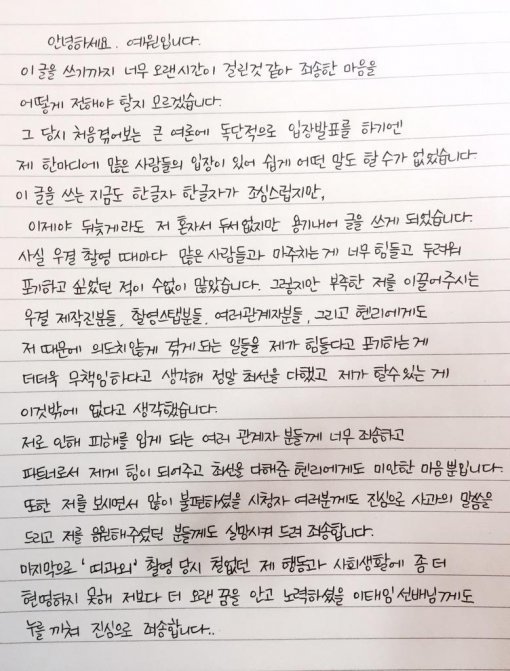 안녕하세요. 예원입니다.
이 글을 쓰기까지 너무 오랜시간이 걸린것 같아 죄송한 마음을
어떻게 전해야 할지 모르겠습니다.
그 당시 처음겪어보는 큰 여론에 독단적으로 입장발표를 하기엔
제 한마디에 많은 사람들의 입장이 있어 쉽게 어떤 말도 할 수가 없었습니다.
이 글을 쓰는 지금도 한글자 한글자가 조심스럽지만,
이제야 뒤늦게라도 저 혼자서 두서없지만 용기내어 글을 쓰게 되었습니다.
사실 우결 촬영 때마다 많은사람들과 마주치는게 너무 힘들고 두려워
포기하고 싶었던 적이 수없이 많았습니다. 그렇지만 부족한 저를 이끌어주시는
우결 제작진분들, 촬영스탭분들, 여러관계자분들, 그리고 헨리에게도
저 때문에 의도치않게 겪게 되는 일들을 제가 힘들다고 포기하는게
더더욱 무책임하다고 생각해 정말 최선을 다했고 제가 할수있는 게
이것밖에 없다고 생각했습니다.
저로 인해 피해를 입게 되는 여러 관계자 분들께 너무 죄송하고
파트너로서 제게 힘이 되어주고 최선을 다해준 헨리에게도 미안한 마음뿐입니다.
또한 저를 보시면서 많이 불편하셨을 시청자 여러분께도 진심으로 사과의 말씀을
드리고 저를 응원해주셨던 분들께도 실망시켜 드려 죄송합니다.
마지막으로 '띠과외' 촬영 당시 철없던 제 행동과 사회생활에 좀 더
현명하지 못해 저보다 더 오랜 꿈을 안고 노력하셨을 이태임 선배님께도
누를 끼쳐 진심으로 죄송합니다..